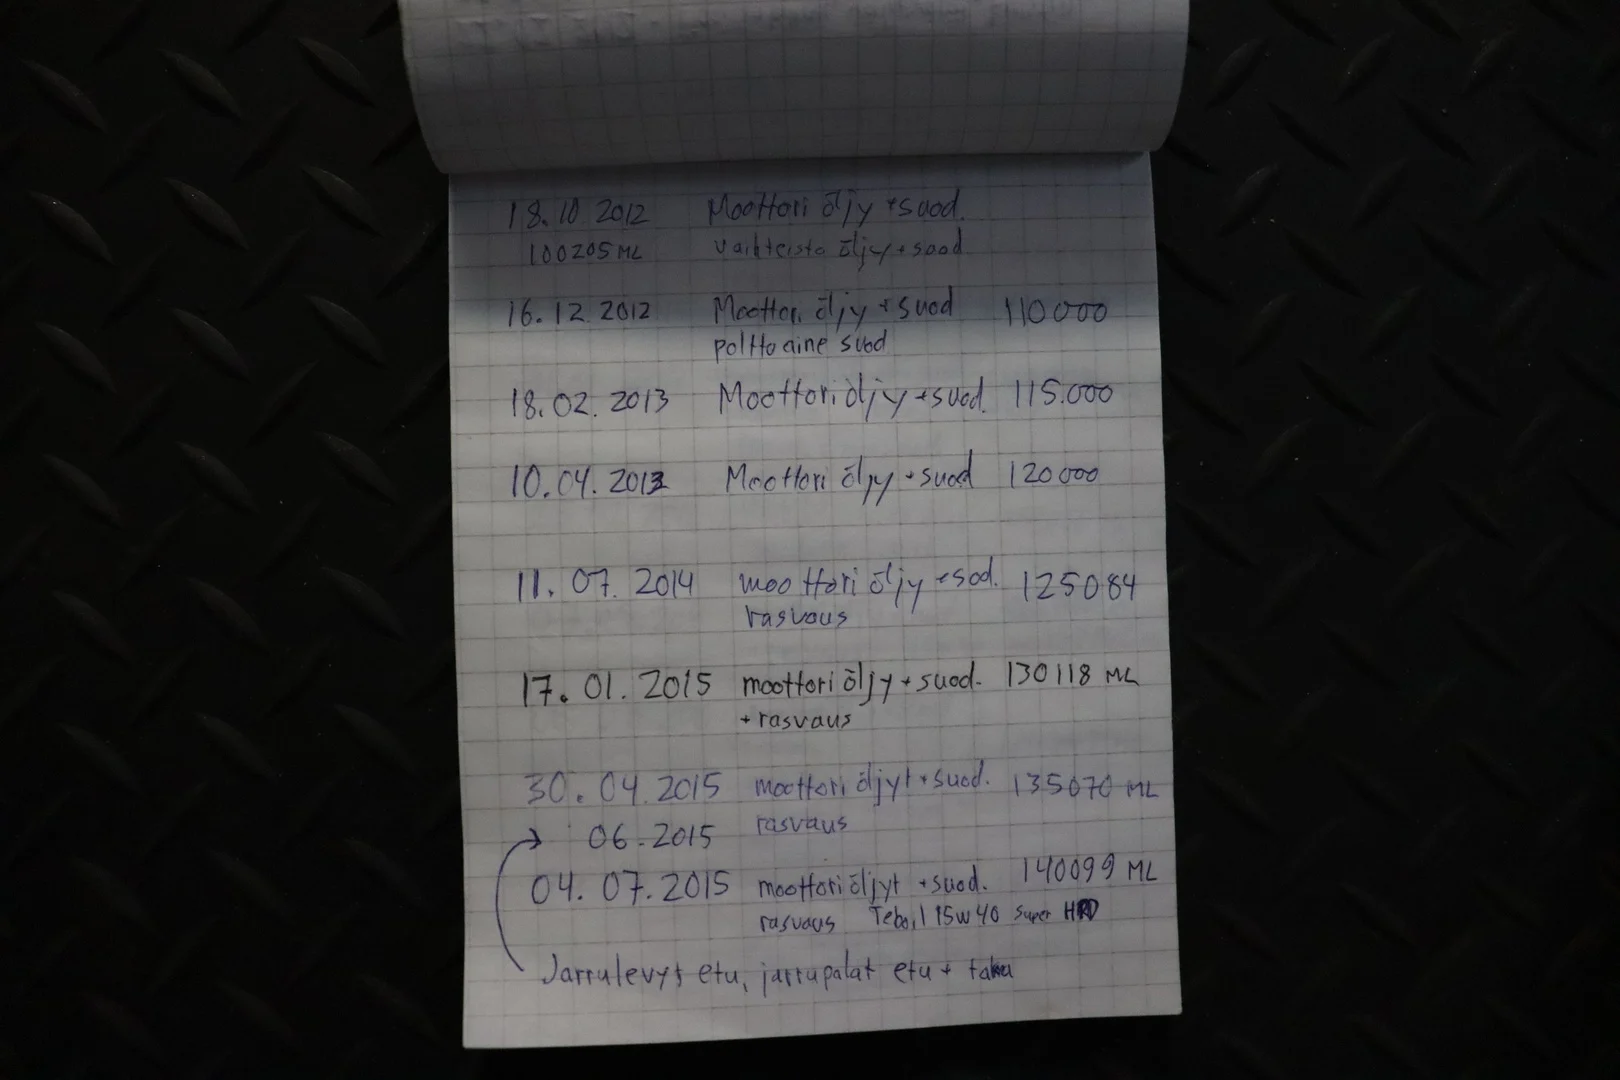 18.10.2012 Moottori öljy + suod.
100205 ML vaihteisto öljy + suod
16.12.2012 Moottori öljy + suod 110000
polttoaine suod
18.02.2013 Moottori öljy + suod. 115.000
10.04.2013 Moottori öljy + suod 120000
11.07.2014 moottori öljy + sod. 125084
rasvaus
17.01.2015 moottori öljy + suod. 130118 ML
+ rasvaus
30.04.2015 moottori öljyt + suod. 135070 ML
rasvaus
06.2015
04.07.2015 moottori öljyt + suod. 140099 ML
rasvaus Teboil 15w40 super HPD
Jarrulevyt etu, jarrupalat etu + taka